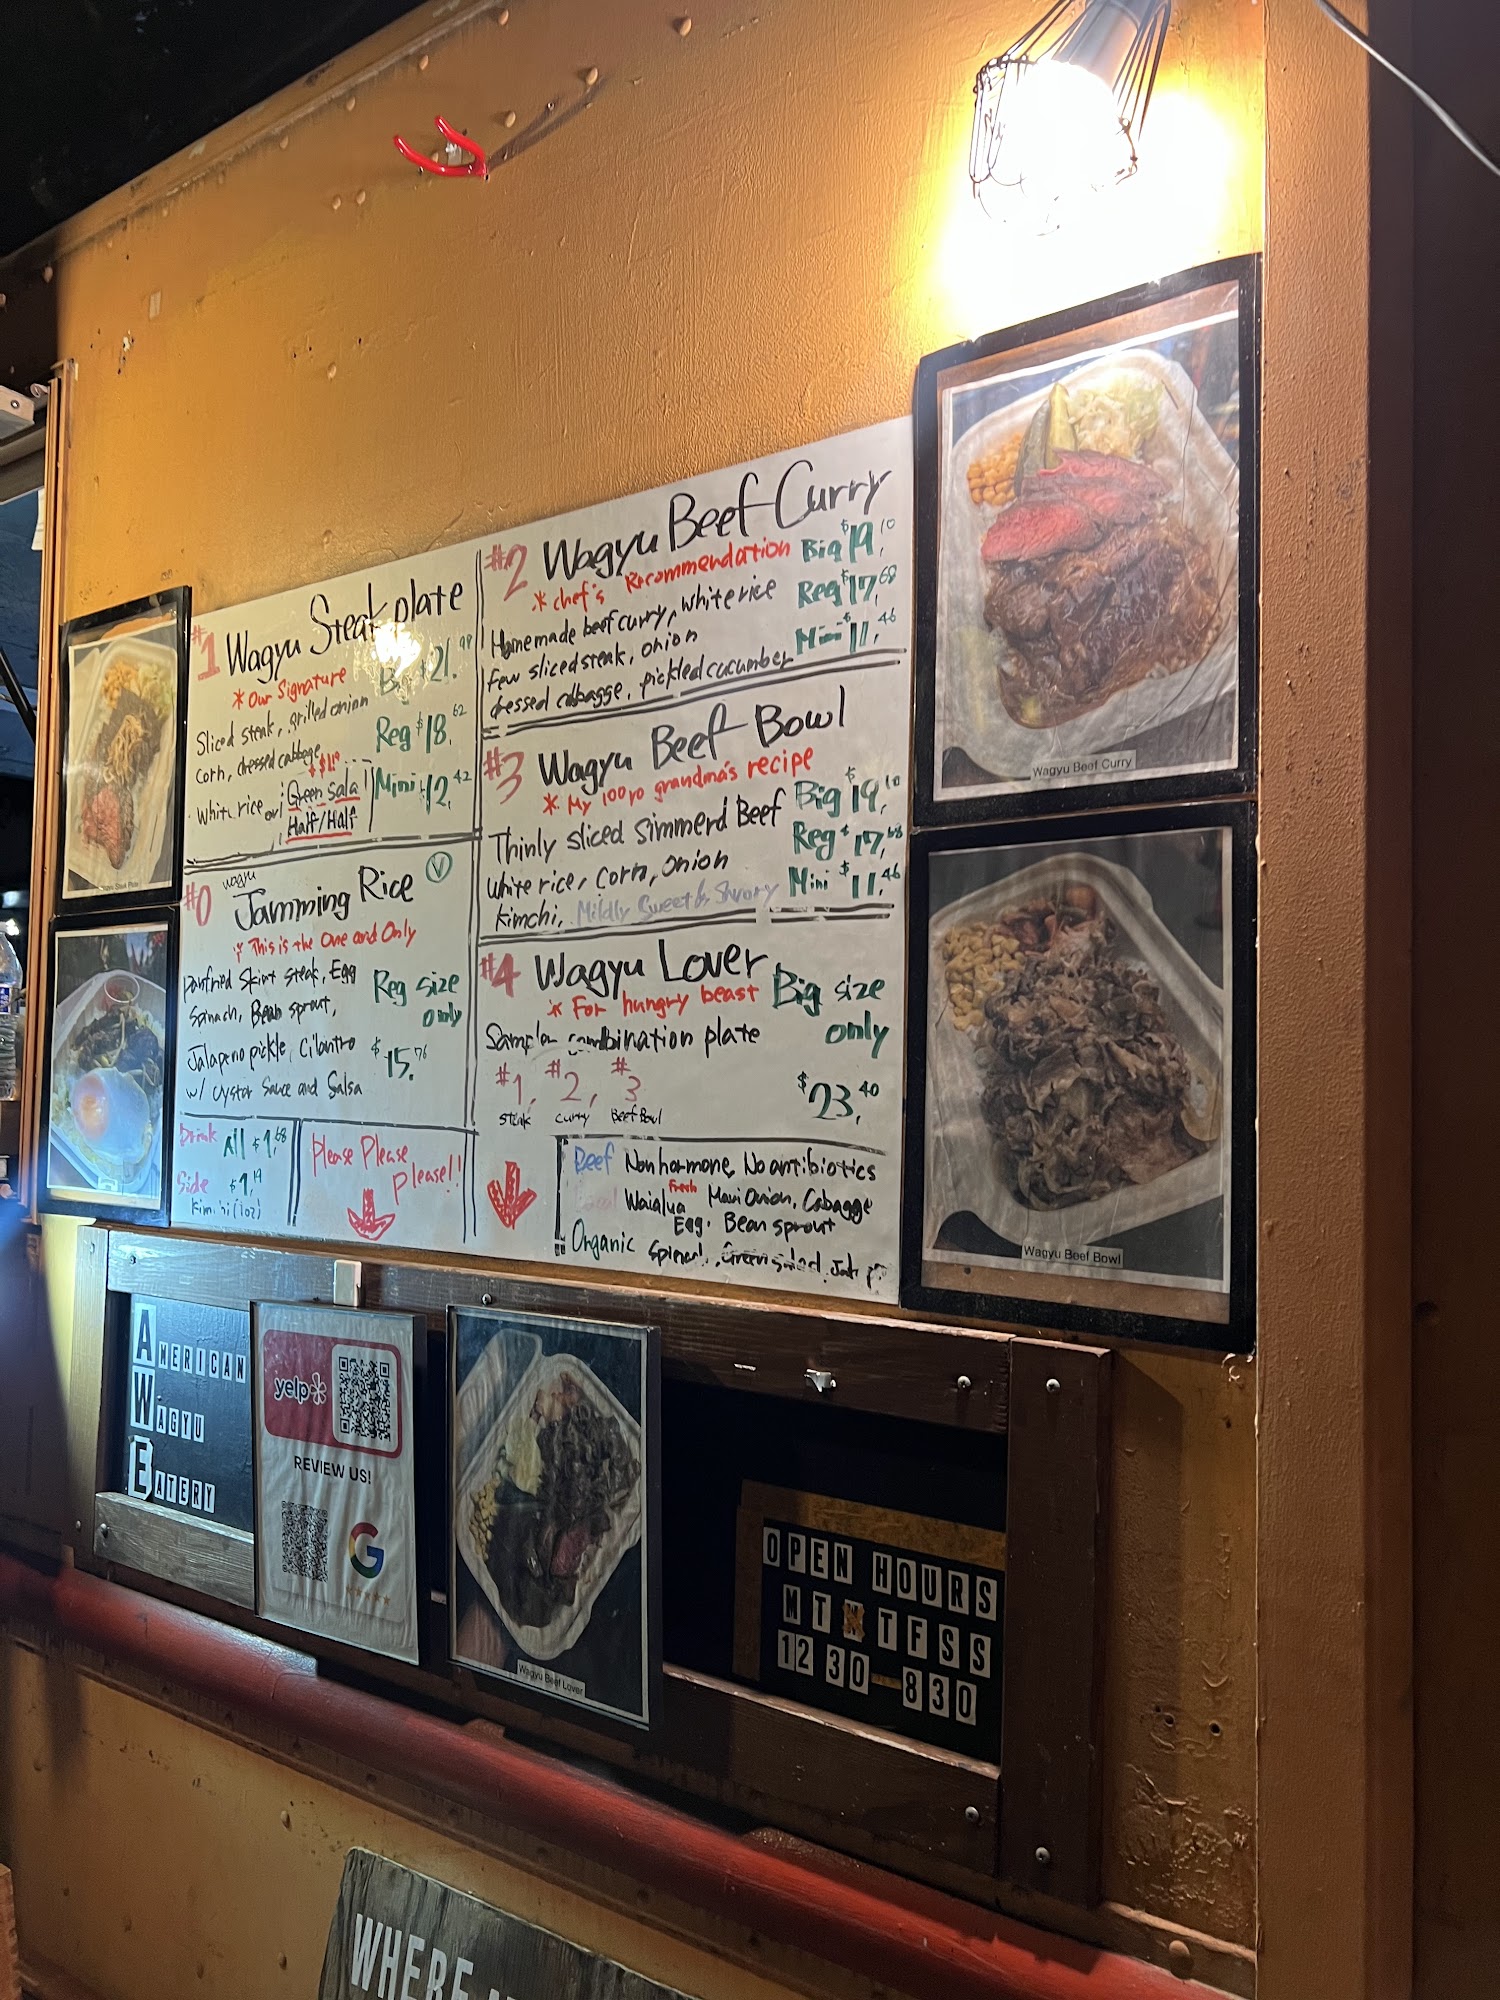 #1 Wagyu Steak plate
* Our Signature
Big $21.98
Sliced steak, grilled onion
Reg $18.62
corn, dressed cabbage
+$1.19
White rice or Green Sala
Half/Half
Mini $12.42
#2 Wagyu Beef Curry
* chef's Recommendation
Big $19.10
Homemade beef curry, white rice
Reg $17.68
few sliced steak, onion
Mini $11.46
dressed cabbagge, pickled cucumber
#3 Wagyu Beef Bowl
* My 100yo grandma's recipe
Big $19.10
Thinly sliced simmerd Beef
Reg $17.68
white rice, corn, onion
Mini $11.46
kimchi, Mildly Sweet &
#0 wagyu Jamming Rice V
* This is the One and Only
panfried Skirt steak, Egg
Reg size
only
Bean sprout,
Jalapeno pickle, Cilantro
$15.76
w/ Oyster Sauce and Salsa
#4 Wagyu Lover
* For hungry beast
Big size
only
combination plate
#1, #2, #3
steak curry Beef Bowl
$23.40
Drink All $1.68
Side $1.19
(1oz)
Please Please
please!!
Beef Non hormone, No antibiotics
Waialua Fresh Maui Onion, Cabagge
Egg. Bean sprout
Organic Green salad
Wagyu Beef Curry
Wagyu Beef Bowl
AMERICAN
WAGYU
EATERY
yelp
REVIEW US!
G
Wagyu Beef Lover
OPEN HOURS
M T W T F S S
12 30 - 8 30
WHERE